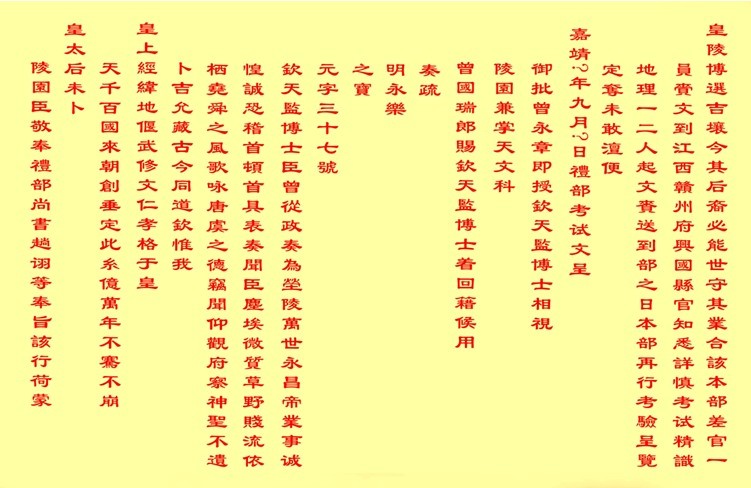 皇陵博選吉壤今其后裔必能世守其業合該本部差官一
員賫文到江西贛州府興國縣官知悉詳慎考試精識
地理一二人起文賫送到部之日本部再行考驗呈覽
定奪未敢澶便
嘉靖?年九月?日禮部考试文呈
御批曾永章即授欽天監博士相視
陵園兼掌天文科
曾國瑞郎賜欽天監博士着回籍候用
奏疏
明永樂
之寶
元字三十七號
欽天監博士臣曾從政奏為塋陵萬世永昌帝業事诚
惶誠恐稽首頓首具表奏聞臣塵埃微質草野賤流依
栖堯舜之風歌咏唐虞之德竊聞仰觀府察神聖不遺
卜吉允藏古今同道欽惟我
皇上經緯地偃武修文仁孝格于皇
天千百國來朝創垂定此糸億萬年不騫不崩
皇太后未卜
陵園臣敬奉禮部尚書趙诩等奉旨該行荷蒙